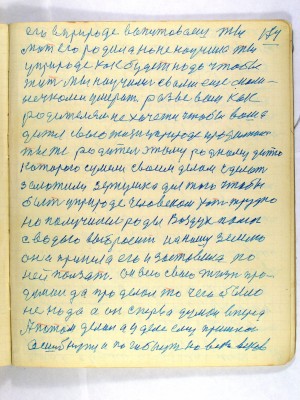 его в природе воспитовали ты 174
мат его родила но не научила ты
у природе как будет надо чтобы
жит мы научили своими силами
нечком умерат разве вам как
родителям не хочется чтобы ваша
дитя свою жизню природе продолжат
ты же родител этому родному дитю
которого сумел своим делом сделат
золотым зернушка для того чтобы
быт у природе человеком хот трудно
но получилис роды Воздух помог
с водою выбросит на нашу землю
она приняла его и заставила по
ней ползат. Он всю свою жизн про-
думал да проделал то чего было
не надо а он сперва думал вперед
А потом делал а у деле ему пришлос
ошибнутся и погибнут на веки веков